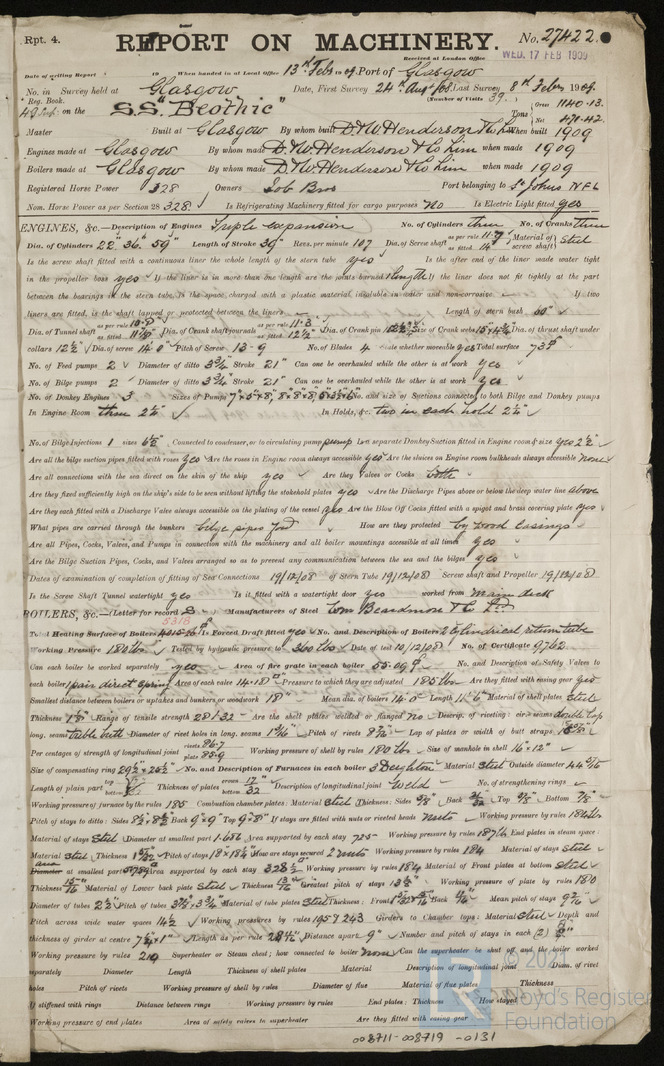 Rpt. 4.
REPORT ON MACHINERY. No. 27422.
Received at London Office WED. 17 FEB 1909
Date of writing Report 19 When handed in at Local Office 13th Feb 1909. Port of Glasgow
No. in Survey held at Glasgow Date, First Survey 24th Aug 08 Last Survey 8th Feb 1909.
Reg. Book. (Number of Visits 39.)
on the S.S. "Beothic" Tons Gross 1140.13 Net 471.42
Master Built at Glasgow By whom built D. & W. Henderson & Co Lim When built 1909
Engines made at Glasgow By whom made D. & W. Henderson & Co Lim when made 1909
Boilers made at Glasgow By whom made D. & W. Henderson & Co Lim when made 1909
Registered Horse Power 328 Owners Job Bros Port belonging to St Johns NFL
Nom. Horse Power as per Section 28 328. Is Refrigerating Machinery fitted for cargo purposes no Is Electric Light fitted yes
ENGINES, &c.—Description of Engines Triple expansion No. of Cylinders three No. of Cranks three
Dia. of Cylinders 22" 36" 59" Length of Stroke 39" Revs. per minute 107 Dia. of Screw shaft as per rule 11.7 as fitted 14" Material of screw shaft Steel
Is the screw shaft fitted with a continuous liner the whole length of the stern tube yes Is the after end of the liner made water tight
in the propeller boss yes If the liner is in more than one length are the joints burned 1 length If the liner does not fit tightly at the part
between the bearings in the stern tube, is the space charged with a plastic material insoluble in water and non-corrosive If two
liners are fitted, is the shaft lapped or protected between the liners Length of stern bush 60"
Dia. of Tunnel shaft as per rule 10.8 as fitted Dia. of Crank shaft journals as per rule 11.3 as fitted 12½ Dia. of Crank pin Size of Crank webs Dia. of thrust shaft under
collars 12½ Dia. of screw 14.0 Pitch of Screw 13.9 No. of Blades 4 State whether moveable yes Total surface 73
No. of Feed pumps 2 Diameter of ditto 3¾ Stroke 21" Can one be overhauled while the other is at work yes
No. of Bilge pumps 2 Diameter of ditto 3¾ Stroke 21" Can one be overhauled while the other is at work yes
No. of Donkey Engines 3 Sizes of Pumps No. and size of Suctions connected to both Bilge and Donkey pumps
In Engine Room three 2½ In Holds, &c. two in each hold 2½
No. of Bilge Injections 1 sizes 6½ Connected to condenser, or to circulating pump pump Is a separate Donkey Suction fitted in Engine room & size yes 2½
Are all the bilge suction pipes fitted with roses yes Are the roses in Engine room always accessible yes Are the sluices on Engine room bulkheads always accessible none
Are all connections with the sea direct on the skin of the ship yes Are they Valves or Cocks both
Are they fixed sufficiently high on the ship's side to be seen without lifting the stokehold plates yes Are the Discharge Pipes above or below the deep water line above
Are they each fitted with a Discharge Valve always accessible on the plating of the vessel yes Are the Blow Off Cocks fitted with a spigot and brass covering plate yes
What pipes are carried through the bunkers bilge pipes for'd How are they protected by wood casings
Are all Pipes, Cocks, Valves, and Pumps in connection with the machinery and all boiler mountings accessible at all times yes
Are the Bilge Suction Pipes, Cocks, and Valves arranged so as to prevent any communication between the sea and the bilges yes
Dates of examination of completion of fitting of Sea Connections 19/12/08 of Stern Tube 19/12/08 Screw shaft and Propeller 19/12/08
Is the Screw Shaft Tunnel watertight yes Is it fitted with a watertight door yes worked from main deck
BOILERS, &c.—(Letter for record S) Manufacturers of Steel Wm Beardmore & Co Ltd
5318
Total Heating Surface of Boilers Is Forced Draft fitted yes No. and Description of Boilers 2 Cylindrical return tube
Working Pressure 180 lbs Tested by hydraulic pressure to 360 lbs Date of test 10/12/08 No. of Certificate 9762
Can each boiler be worked separately yes Area of fire grate in each boiler 55.09 No. and Description of Safety Valves to
each boiler 1 pair direct spring Area of each valve 14.18 Pressure to which they are adjusted 185 lbs Are they fitted with easing gear yes
Smallest distance between boilers or uptakes and bunkers or woodwork 18" Mean dia. of boilers 14.0 Length 11.6 Material of shell plates Steel
Thickness 1⅛ Range of tensile strength 28-32 Are the shell plates welded or flanged no Descrip. of riveting: cir. seams double lap
long. seams treble butt Diameter of rivet holes in long. seams Pitch of rivets Lap of plates or width of butt straps
Per centages of strength of longitudinal joint rivets 86.7 plate 85.9 Working pressure of shell by rules 180 lbs Size of manhole in shell 16" x 12"
Size of compensating ring No. and Description of Furnaces in each boiler 3 Deighton Material Steel Outside diameter
Length of plain part top bottom Thickness of plates crown bottom Description of longitudinal joint Weld No. of strengthening rings
Working pressure of furnace by the rules 185 Combustion chamber plates: Material Steel Thickness: Sides Back Top Bottom
Pitch of stays to ditto: Sides Back 9" x 9" Top If stays are fitted with nuts or riveted heads Nuts Working pressure by rules 184 lbs
Material of stays Steel Diameter at smallest part 1.686 Area supported by each stay 725 Working pressure by rules End plates in steam space:
Material Steel Thickness Pitch of stays How are stays secured 2 nuts Working pressure by rules 184 Material of stays Steel
Area at smallest part Area supported by each stay 328½ Working pressure by rules 184 Material of Front plates at bottom Steel
Thickness Material of Lower back plate Steel Thickness Greatest pitch of stays 13½ Working pressure of plate by rules 180
Diameter of tubes 2½ Pitch of tubes Material of tube plates Steel Thickness: Front Back Mean pitch of stays
Pitch across wide water spaces 14½ Working pressures by rules 195 & 243 Girders to Chamber tops: Material Steel Depth and
thickness of girder at centre Length as per rule Distance apart 9" Number and pitch of stays in each (2)
Working pressure by rules 210 Superheater or Steam chest; how connected to boiler none Can the superheater be shut off and the boiler worked
separately Diameter Length Thickness of shell plates Material Description of longitudinal joint Diam. of rivet
holes Pitch of rivets Working pressure of shell by rules Diameter of flue Material of flue plates Thickness
If stiffened with rings Distance between rings Working pressure by rules End plates: Thickness How stayed
Working pressure of end plates Area of safety valves to superheater Are they fitted with easing gear
© 2021
Lloyd's Register
Foundation
008711-008719-0131